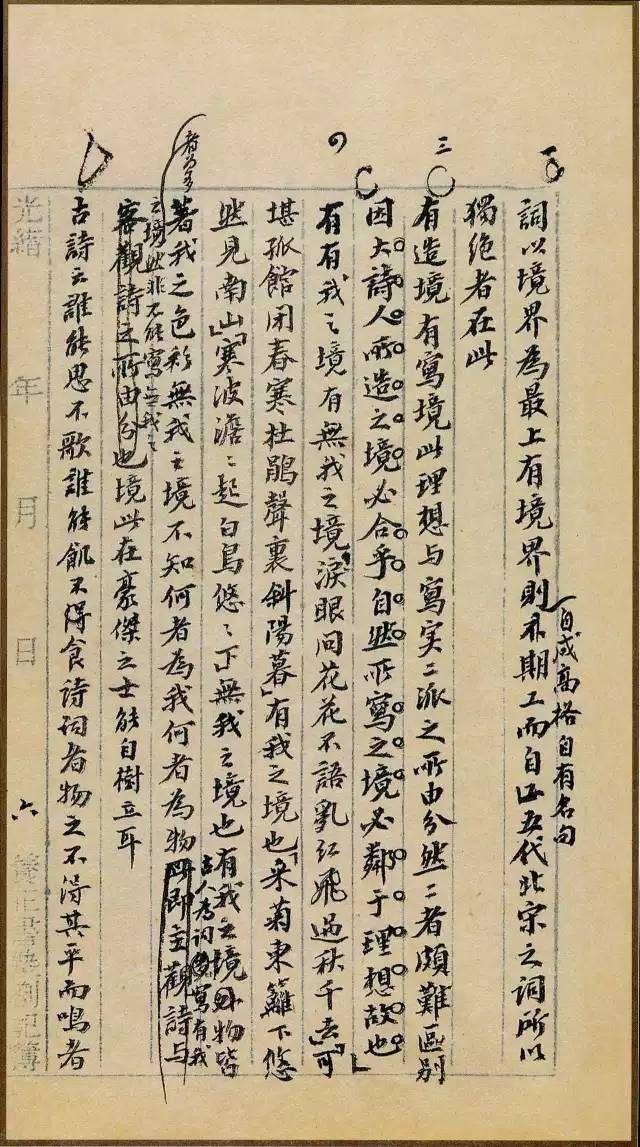 一
詞以境界為最上有境界則不期工而自工五代北宋之詞所以
自成高格自有名句
獨絕者在此
三
有造境有寫境此理想与寫实二派之所由分然二者頗難區别
因大詩人所造之境必合乎自然所寫之境必鄰于理想故也
有有我之境有無我之境「淚眼問花花不語乱红飛過秋千去」「可
堪孤館闭春寒杜鵑聲裏斜陽暮」有我之境也「采菊東籬下悠
然見南山」「寒波澹〻起白鳥悠〻下」無我之境也有我之境物皆
著我之色彩無我之境不知何者為我何者為物此即主觀詩与
古人为詞寫有我
之境者为多然非不能寫無我之
客觀詩之所由分也境此在豪傑之士能自樹立耳
古詩云誰能思不歌誰能飢不得食詩詞者物之不得其平而鳴者
光緒 年 月 日 六